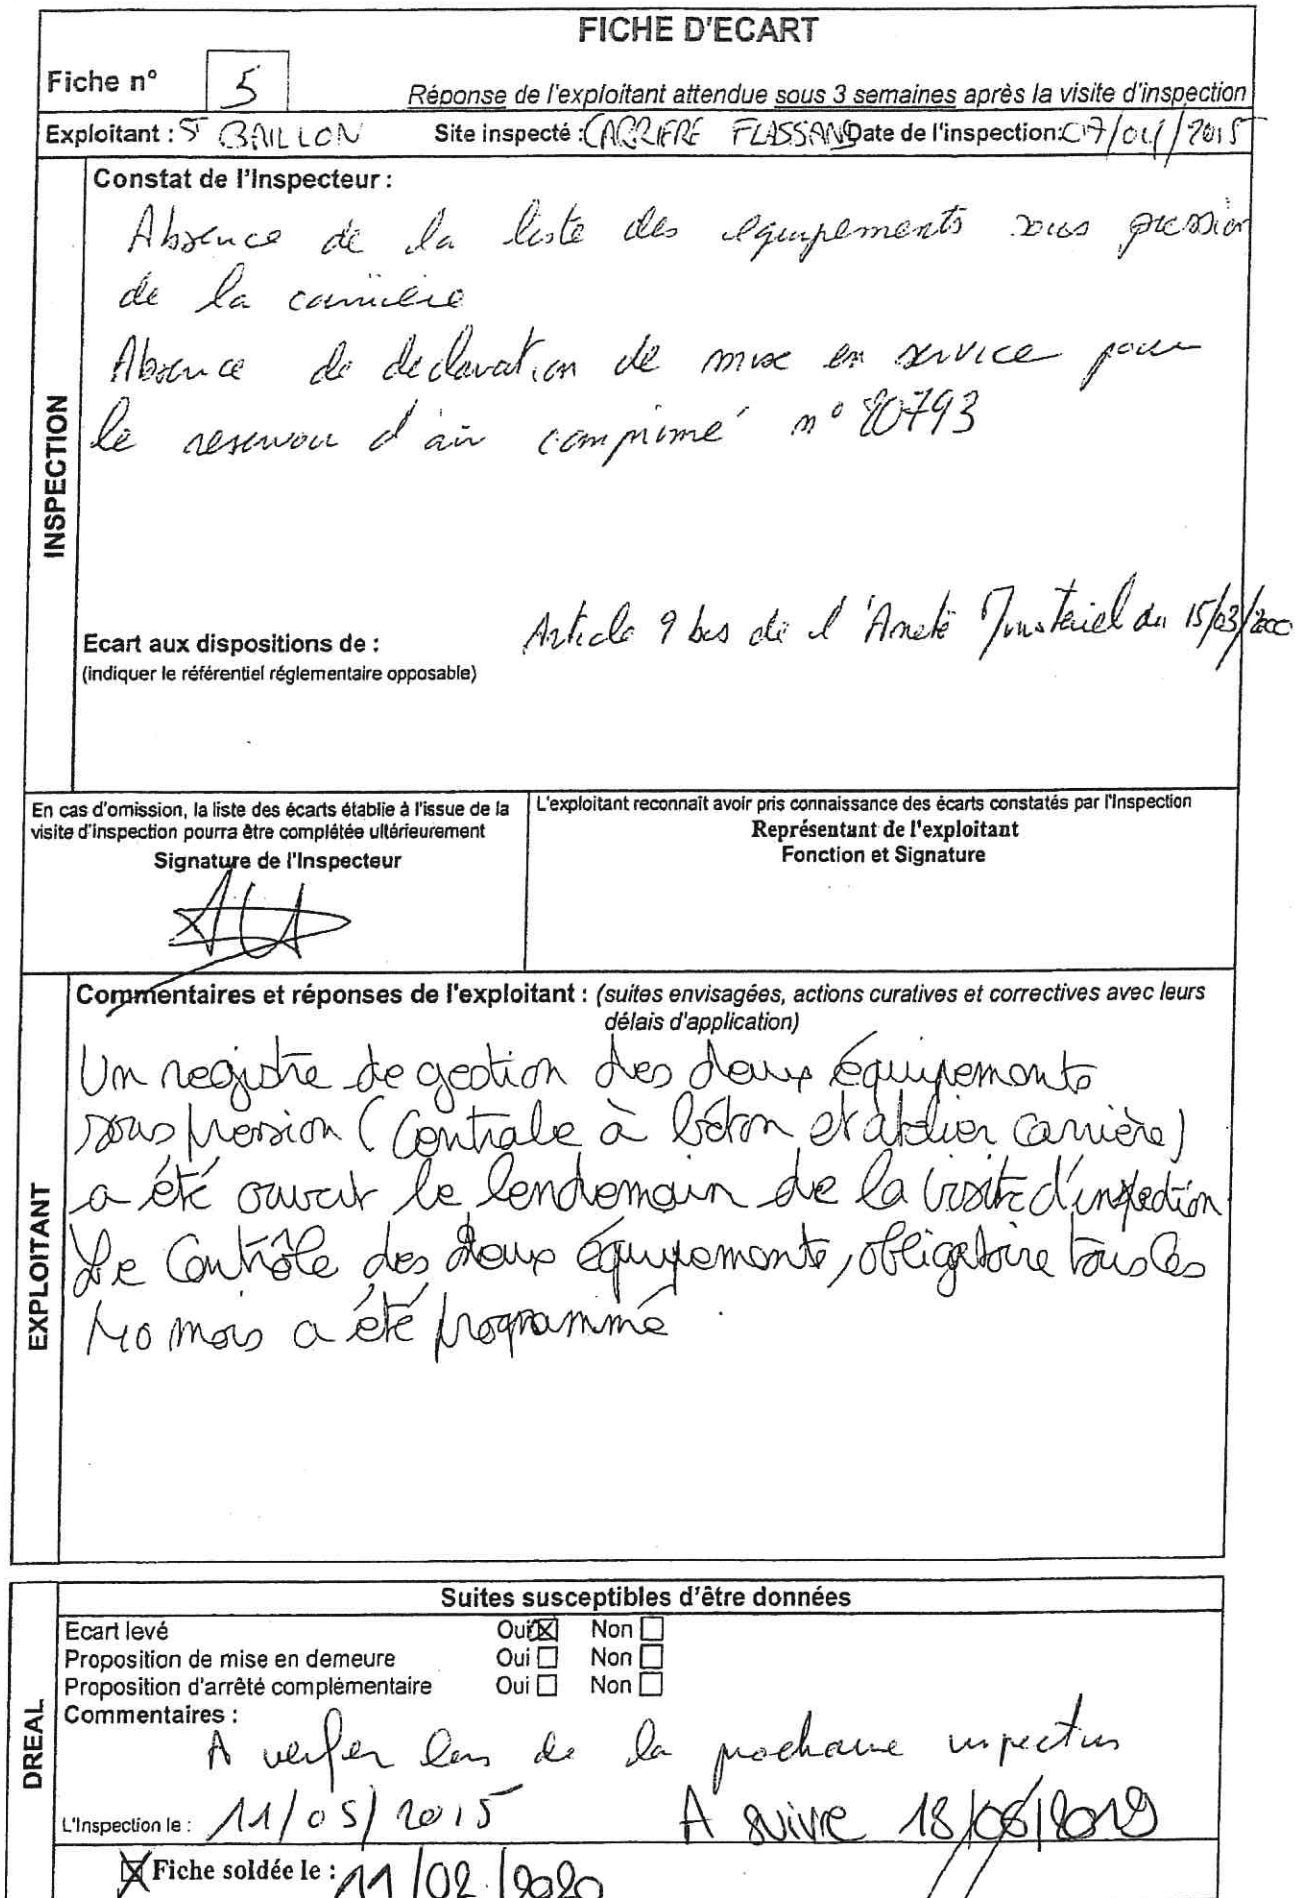 FICHE D'ECART
Fiche n° 5
Réponse de l'exploitant attendue sous 3 semaines après la visite d'inspection
Exploitant : St BAILLON Site inspecté : CARRIERE FLASSANS Date de l'inspection: 07/04/2015
Constat de l'Inspecteur :
Absence de la liste des equipements sous pression
de la carrière
Absence de declaration de mise en service pour
le reservoir d'air comprimé n° 80793
INSPECTION
Article 9 bis de l'Arreté Ministeriel du 15/03/2000
Ecart aux dispositions de :
(indiquer le référentiel réglementaire opposable)
En cas d'omission, la liste des écarts établie à l'issue de la
visite d'inspection pourra être complétée ultérieurement
Signature de l'Inspecteur
L'exploitant reconnaît avoir pris connaissance des écarts constatés par l'Inspection
Représentant de l'exploitant
Fonction et Signature
EXPLOITANT
Commentaires et réponses de l'exploitant : (suites envisagées, actions curatives et correctives avec leurs
délais d'application)
Un registre de gestion des deux équipements
sous pression (Centrale à béton et atelier carrière)
a été ouvert le lendemain de la visite d'inspection
Le Contrôle des deux équipements, obligatoire tous les
40 mois a été programmé
DREAL
Suites susceptibles d'être données
Ecart levé Oui Non
Proposition de mise en demeure Oui Non
Proposition d'arrêté complémentaire Oui Non
Commentaires :
A verifier lors de la prochaine inspection
L'Inspection le : 11/05/2015 A suivre 18/06/2019
Fiche soldée le : 11/02/2020